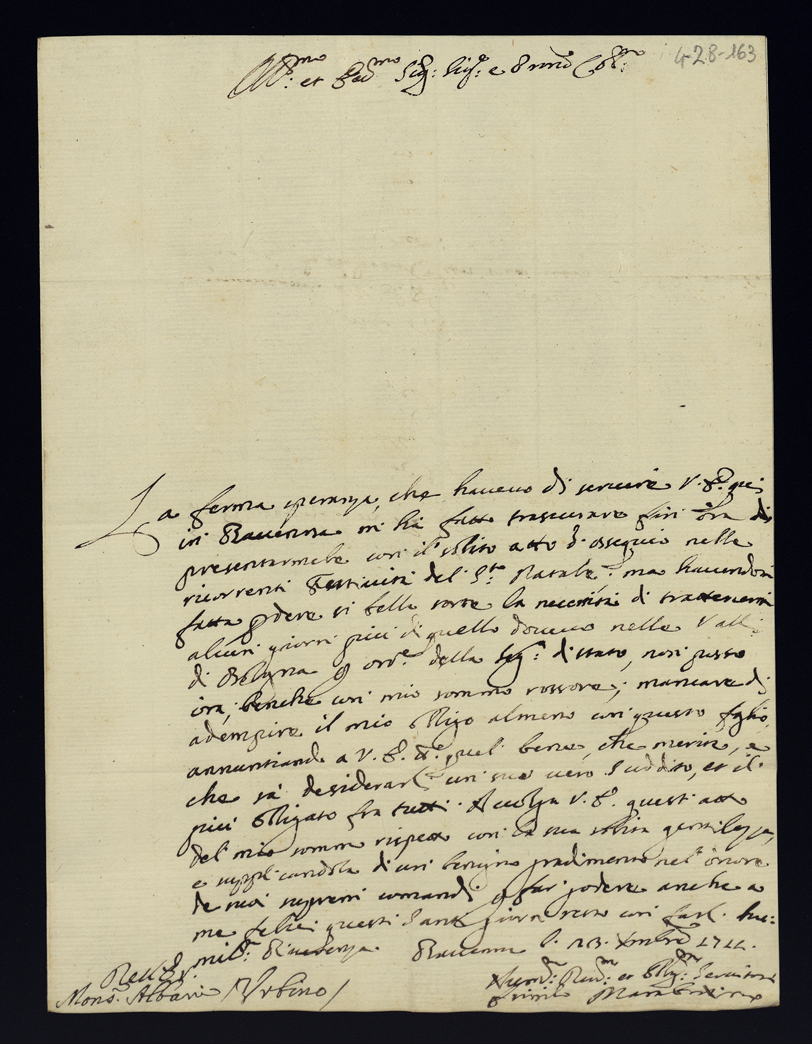 428-163
Ill.mo et Rev.mo Sig: Sig: e Pron Col:
La ferma speranza, che havevo di servire V. E. qui
in Ravenna mi ha fatto trascurare fin' ora di
presentarmele con il solito atto d'ossequio nelle
ricorrenti Festività del S.to Natale: ma havendomi
fatto perdere si bella sorte la necessità di trattenermi
alcuni giorni più di quello dovevo nelle Valli
di Bologna p ord.e della Seg.a di stato, non posso
ora, benche con mio sommo rossore, mancare di
adempire il mio obligo almeno con questo foglio,
annuntiando a V. E. quel bene, che merita, e
che sà desiderarle un suo vero Suddito, et il
più obligato fra tutti. Accolga V. E. quest' atto
del mio sommo rispetto con la sua solita gentilezza,
e supplicandola d'un benigno gradimento nel' onore
de suoi supremi comandi p far godere anche a
me felici questi Santi giorni resto con farle hu:
mil.ma Riverenza. Ravenna li 23 Xmbre 1711.
Mons. Albani Urbino
Humil.mo Dev.mo et Oblig.mo Servitore